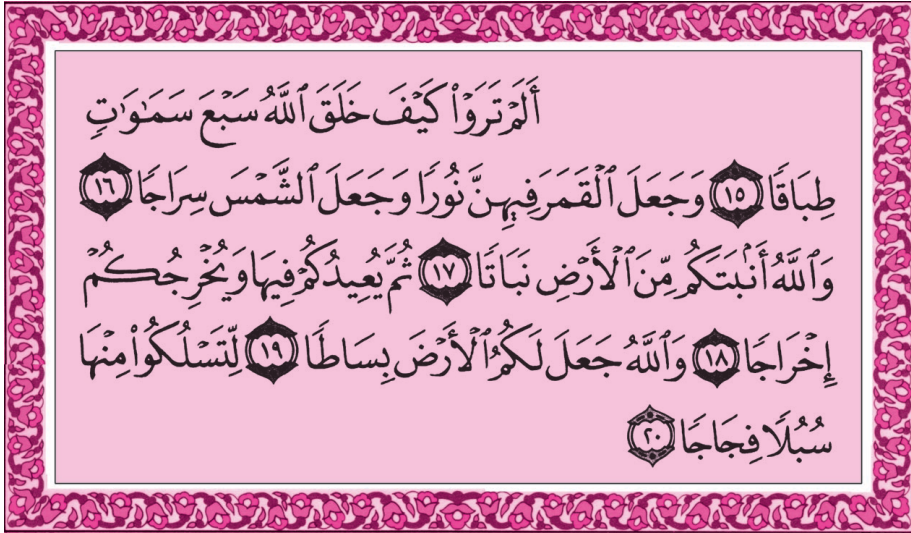 أَلَمْ تَرَوْا۟ كَيْفَ خَلَقَ ٱللَّهُ سَبْعَ سَمَٰوَٰتٍ
طِبَاقًا ١٥ وَجَعَلَ ٱلْقَمَرَ فِيهِنَّ نُورًا وَجَعَلَ ٱلشَّمْسَ سِرَاجًا ١٦
وَٱللَّهُ أَنۢبَتَكُم مِّنَ ٱلْأَرْضِ نَبَاتًا ١٧ ثُمَّ يُعِيدُكُمْ فِيهَا وَيُخْرِجُكُمْ
إِخْرَاجًا ١٨ وَٱللَّهُ جَعَلَ لَكُمُ ٱلْأَرْضَ بِسَاطًا ١٩ لِّتَسْلُكُوا۟ مِنْهَا
سُبُلًا فِجَاجًا ٢٠